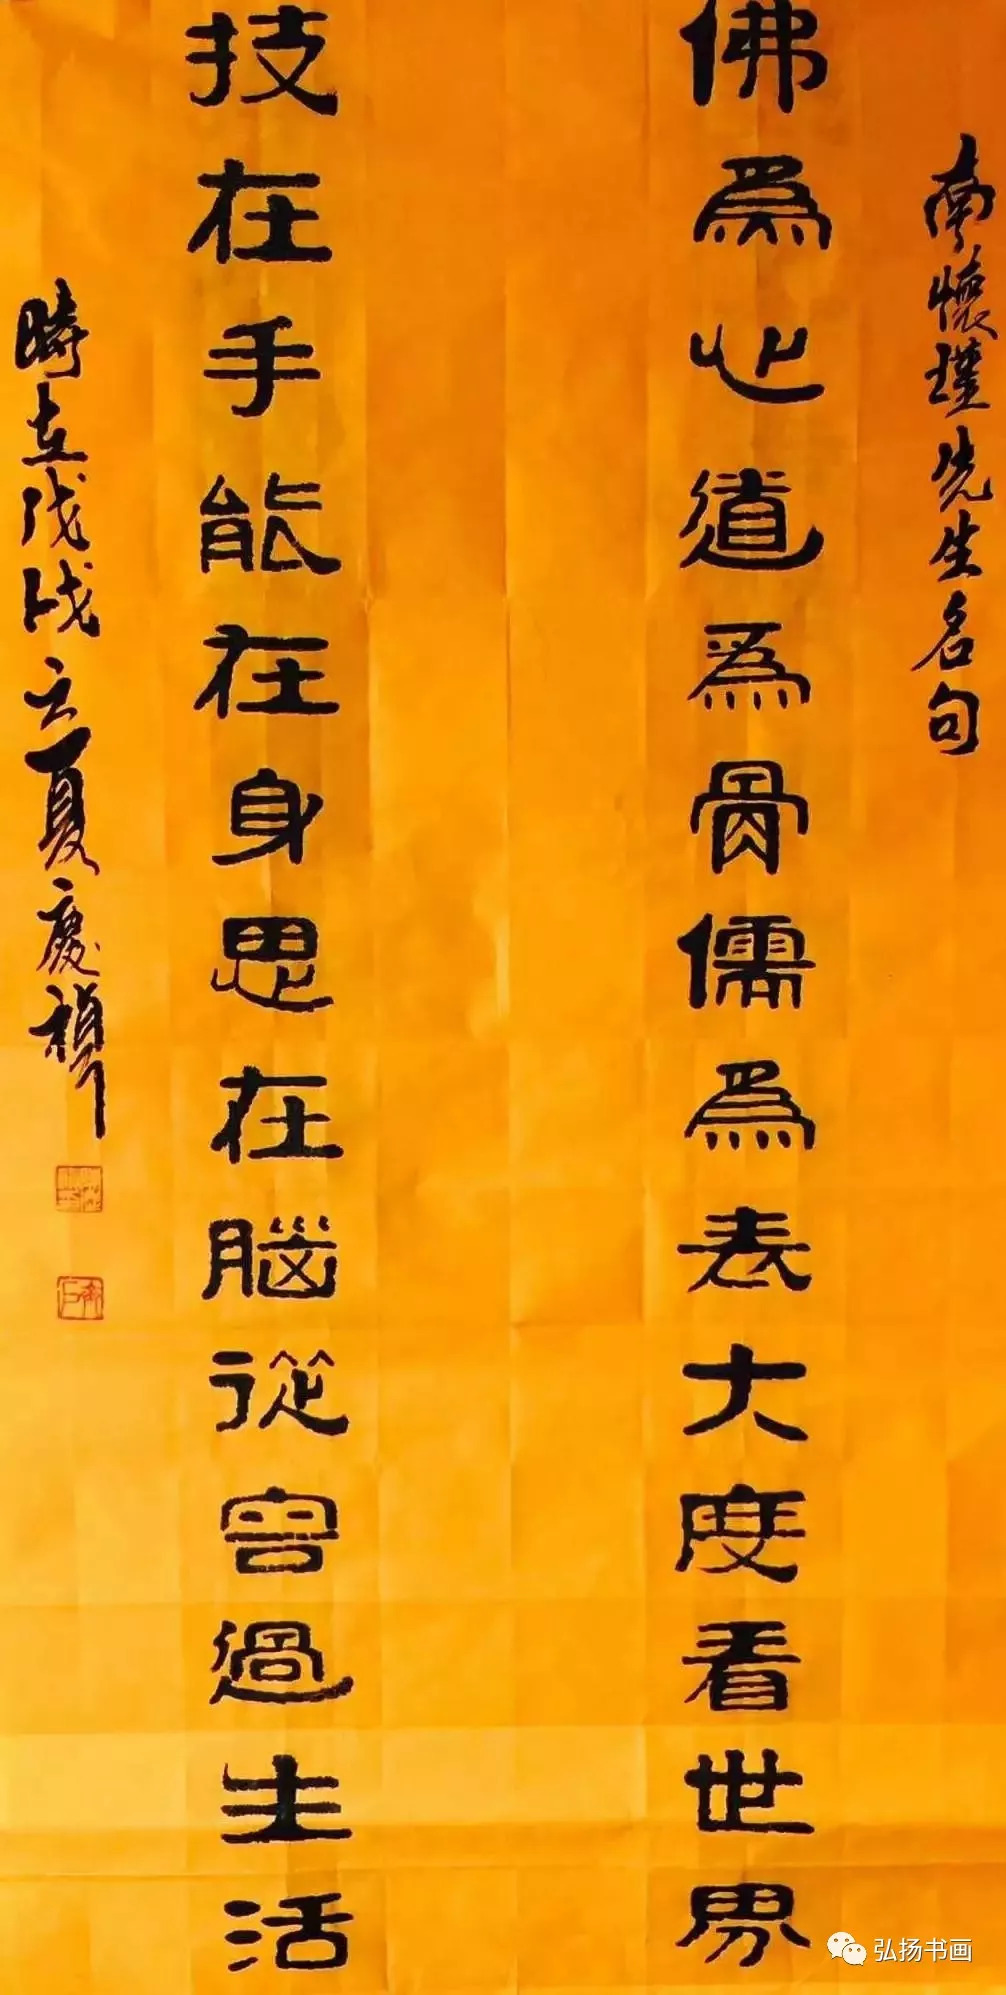 南懷瑾先生名句
佛爲心道爲骨儒爲表大度看世界
技在手能在身思在腦從容過生活
時在戊戌立夏慶
弘扬书画